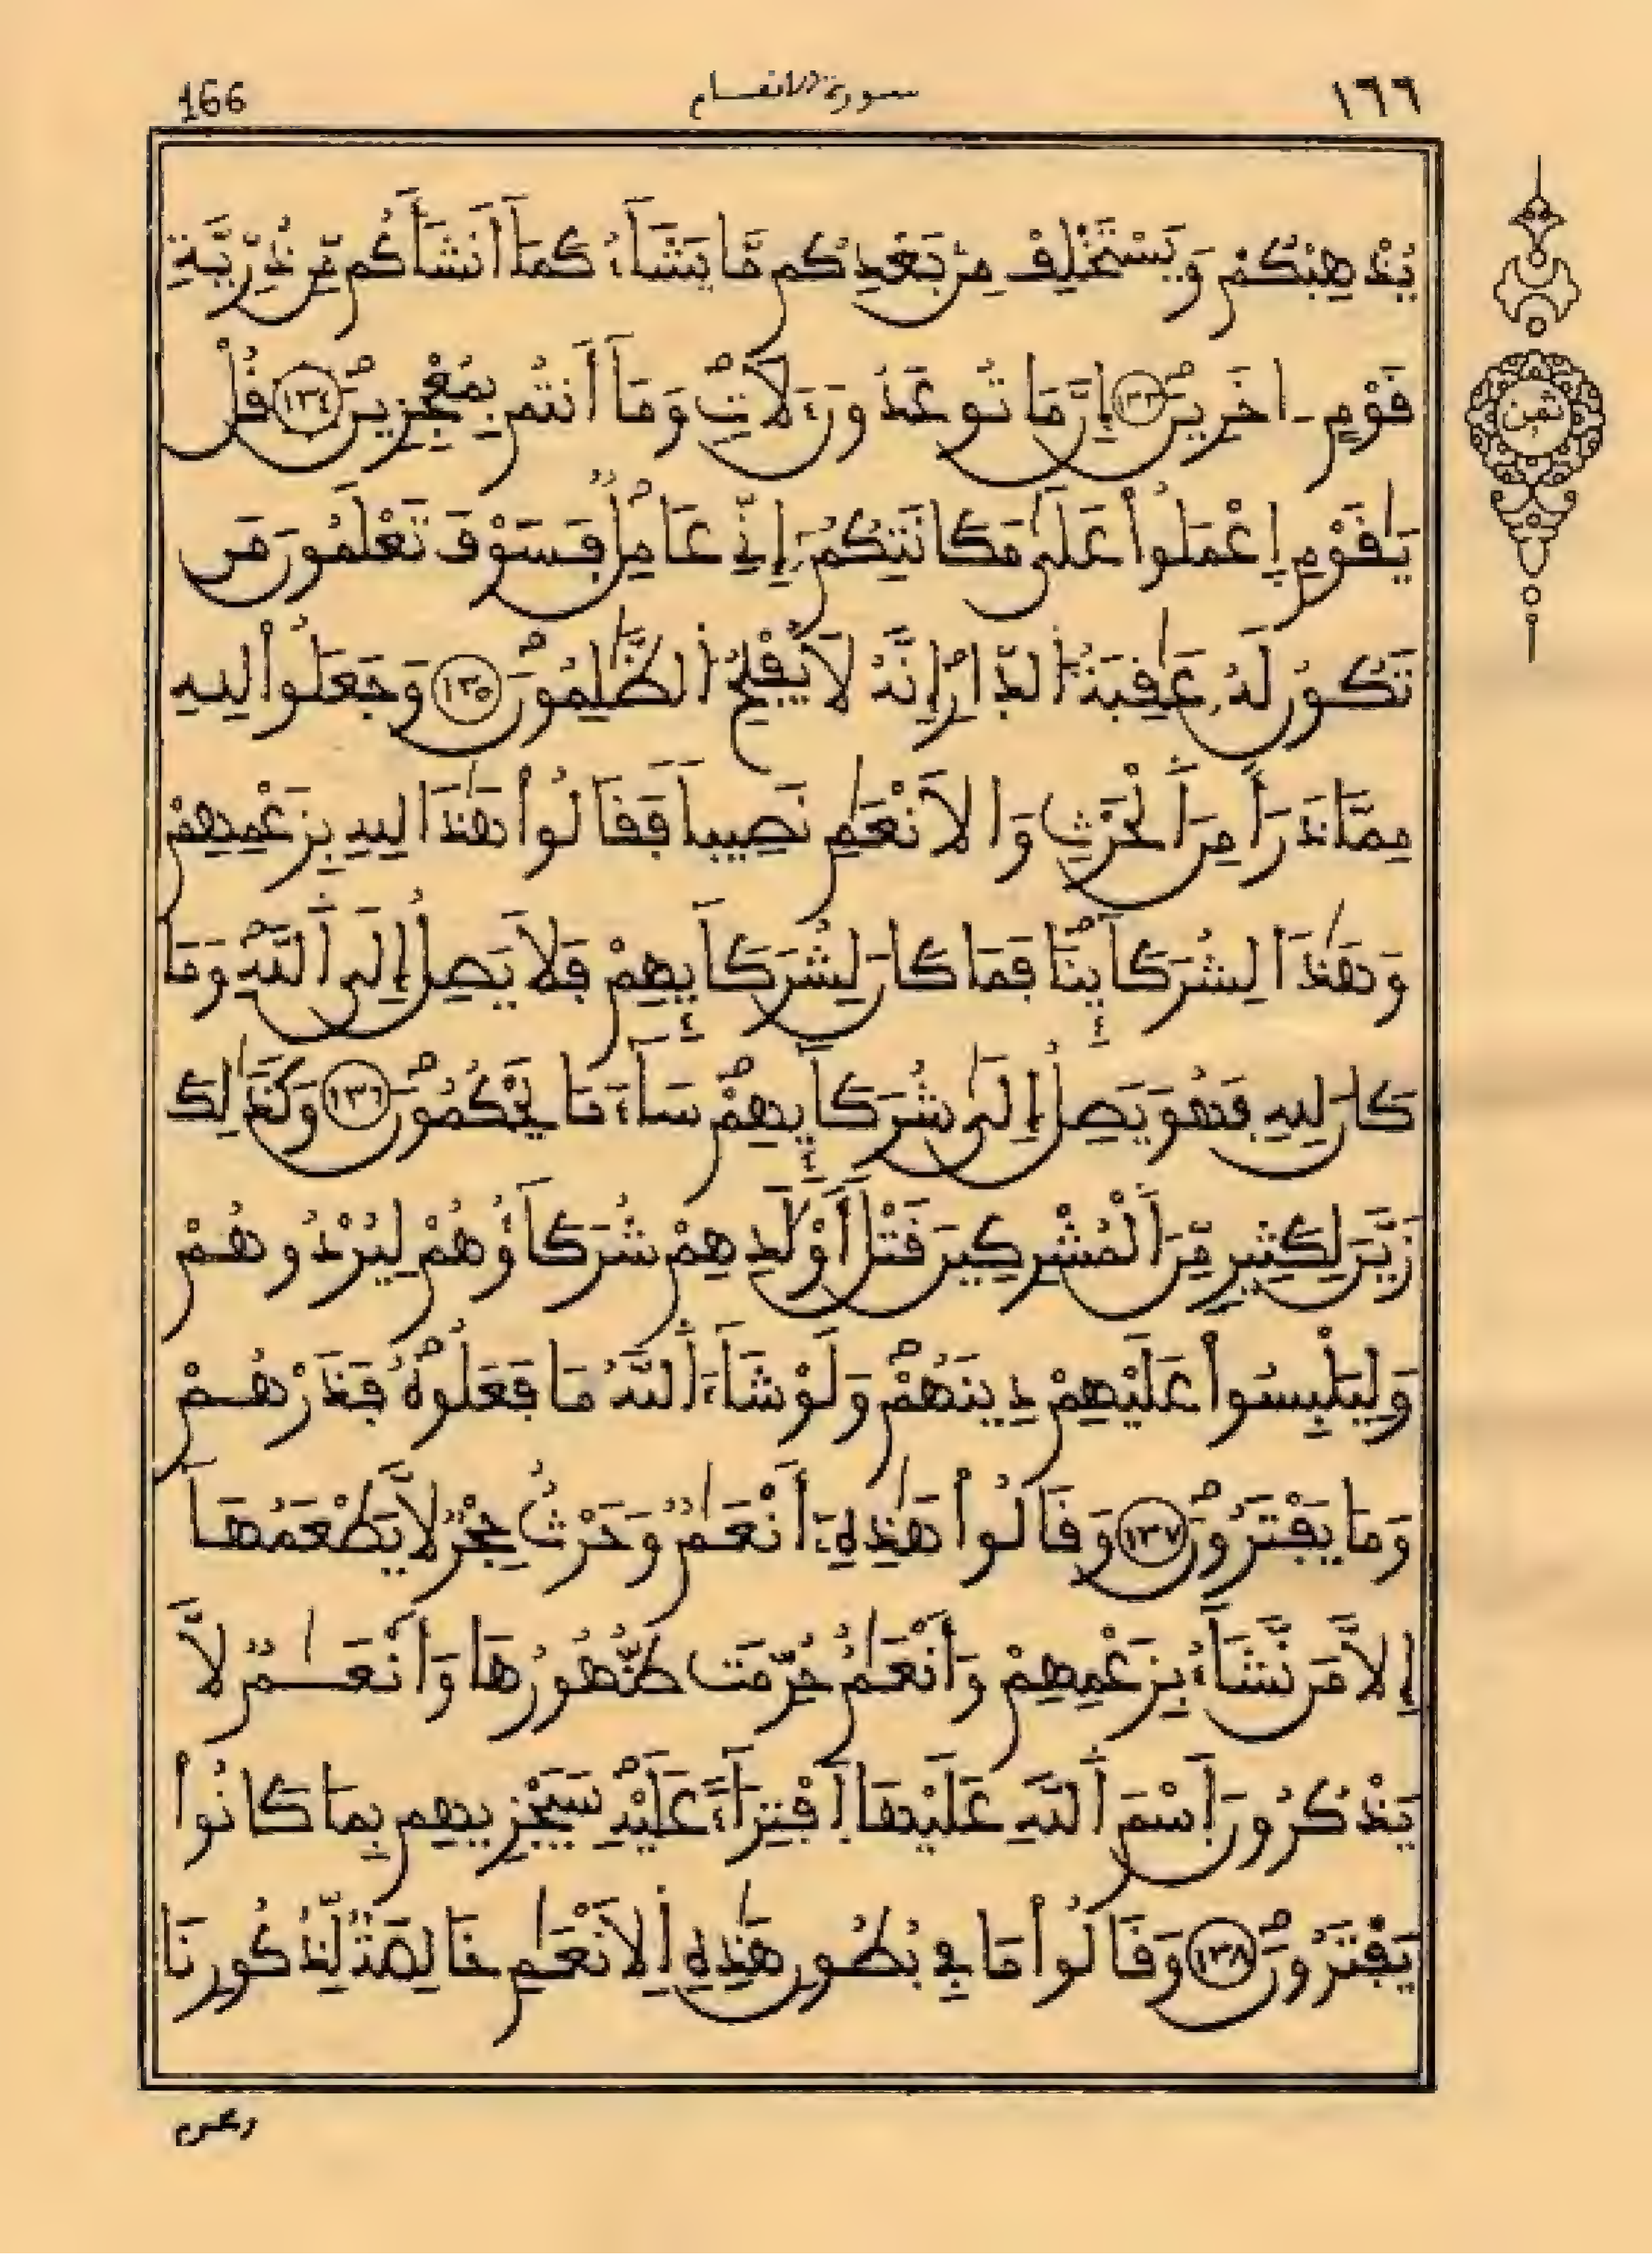 166 سورة الانعام ١٦٦
يُذْهِبْكُمْ وَيَسْتَخْلِفْ مِنۢ بَعْدِكُم مَّا يَشَآءُ كَمَآ أَنشَأَكُم مِّن ذُرِّيَّةِ
قَوْمٍ ـ اخَرِينَ ١٣٣ إِنَّ مَا تُوعَدُونَ ءَلَاتٖ وَمَآ أَنتُم بِمُعْجِزِينَ ١٣٤ قُلْ
يَٰقَوْمِ اِعْمَلُواْ عَلَىٰ مَكَانَتِكُمُۥٓ إِنِّے عَامِلٞ فَسَوْفَ تَعْلَمُونَ مَن
تَكُونُ لَهُۥ عَٰقِبَةُ الدّ۪ارِ إِنَّهُۥ لَا يُفْلِحُ الظَّٰلِمُونَ ١٣٥ وَجَعَلُواْ لِلهِ
مِمَّا ذَرَأَ مِنَ اَلْحَرْثِ وَالَانْعَٰمِ نَصِيباٗ فَقَالُواْ هَٰذَا لِلهِ بِزَعْمِهِمْ
وَهَٰذَا لِشُرَكَآئِنَا فَمَا كَانَ لِشُرَكَآئِهِمْ فَلَا يَصِلُ إِلَى اَللَّهِ وَمَا
كَانَ لِلهِ فَهُوَ يَصِلُ إِلَىٰ شُرَكَآئِهِمْ سَآءَ مَا يَحْكُمُونَ ١٣٦ وَكَذَٰلِكَ
زَيَّنَ لِكَثِيرٖ مِّنَ اَلْمُشْرِكِينَ قَتْلَ أَوْلَٰدِهِمْ شُرَكَآؤُهُمْ لِيُرْدُوهُمْ
وَلِيَلْبِسُواْ عَلَيْهِمْ دِينَهُمْ وَلَوْ شَآءَ اَللَّهُ مَا فَعَلُوهُ فَذَرْهُمْ
وَمَا يَفْتَرُونَ ١٣٧ وَقَالُواْ هَٰذِهِۦٓ أَنْعَٰمٞ وَحَرْثٌ حِجْرٞ لَّا يَطْعَمُهَآ
إِلَّا مَن نَّشَآءُ بِزَعْمِهِمْ وَأَنْعَٰمٌ حُرِّمَت ظُّهُورُهَا وَأَنْعَٰمٞ لَّا
يَذْكُرُونَ اَسْمَ اَللَّهِ عَلَيْهَا اَفْتِرَآءً عَلَيْهِ سَيَجْزِيهِم بِمَا كَانُواْ
يَفْتَرُونَ ١٣٨ وَقَالُواْ مَا فِے بُطُونِ هَٰذِهِ اِلَانْعَٰمِ خَالِصَةٞ لِّذُكُورِنَا
ثمن
ومحرم